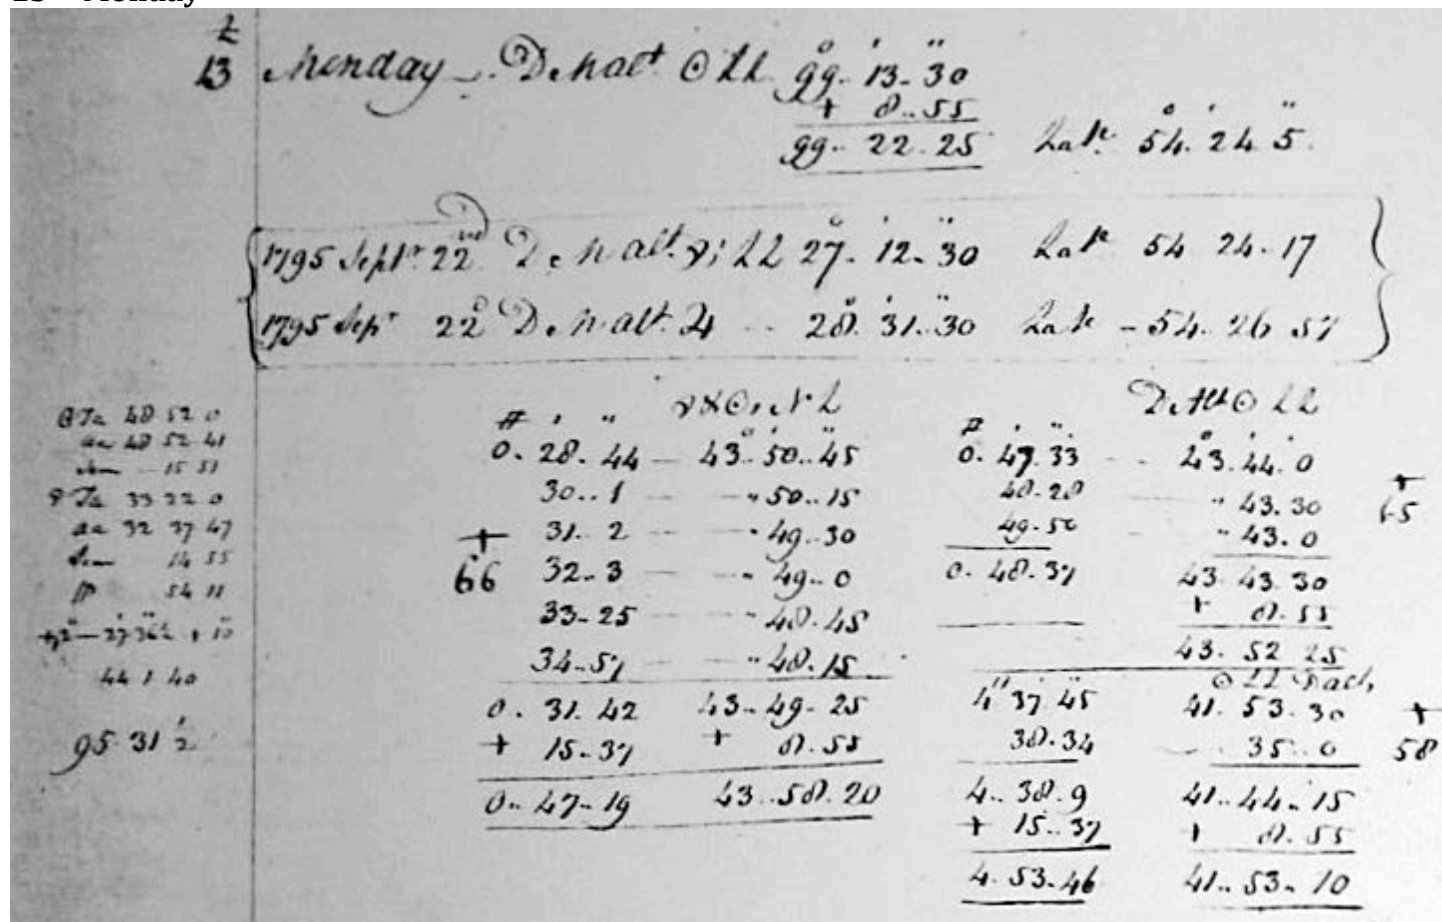 13 Monday – D. Malt ☉ LL 99° 13' 30"
+ 8.. 55
99.. 22. 25 Latde 54° 24' 5"
1795 Septr 22nd D. M alt. LL 27° 12' 30" Latde 54 24 - 17
1795 Sepr 22d D. M alt. ♃ -- 28° 31' 30" Latde - 54.. 26. 57
☉ Ra 48 52 0
aa 48 52 41
Sem 15 51
Ra 33 22 0
aa 32 37 47
Sem 14 55
pp 54 11
44 1 40
95 31 2
H ' " ☉ NL
0. 28. 44 — 43° 50' 45"
30.. 1 — " 50.. 15
+ 31. 2 — " 49.. 30
66 32.. 3 — " 49.. 0
33 - 25 — " 48. 45
34.. 57 — " 48. 15
0. 31. 42 43 - 49 - 25
+ 15 - 37 + 8. 55
0.. 47 - 19 43.. 58. 20
D. Alt ☉ LL
H ' "
0. 47. 33 -- 43° 44' 0"
48 - 28 " 43. 30 + 65
49 - 50 " 43. 0
0. 48. 37 43 43. 30
+ 8. 55
43. 52 25
☉ LL Back
4H 37' 45" 41. 53. 30 +
38. 34 35. 0 58
4.. 38. 9 41.. 44.. 15
+ 15.. 37 + 8. 55
4. 53. 46 41.. 53.. 10